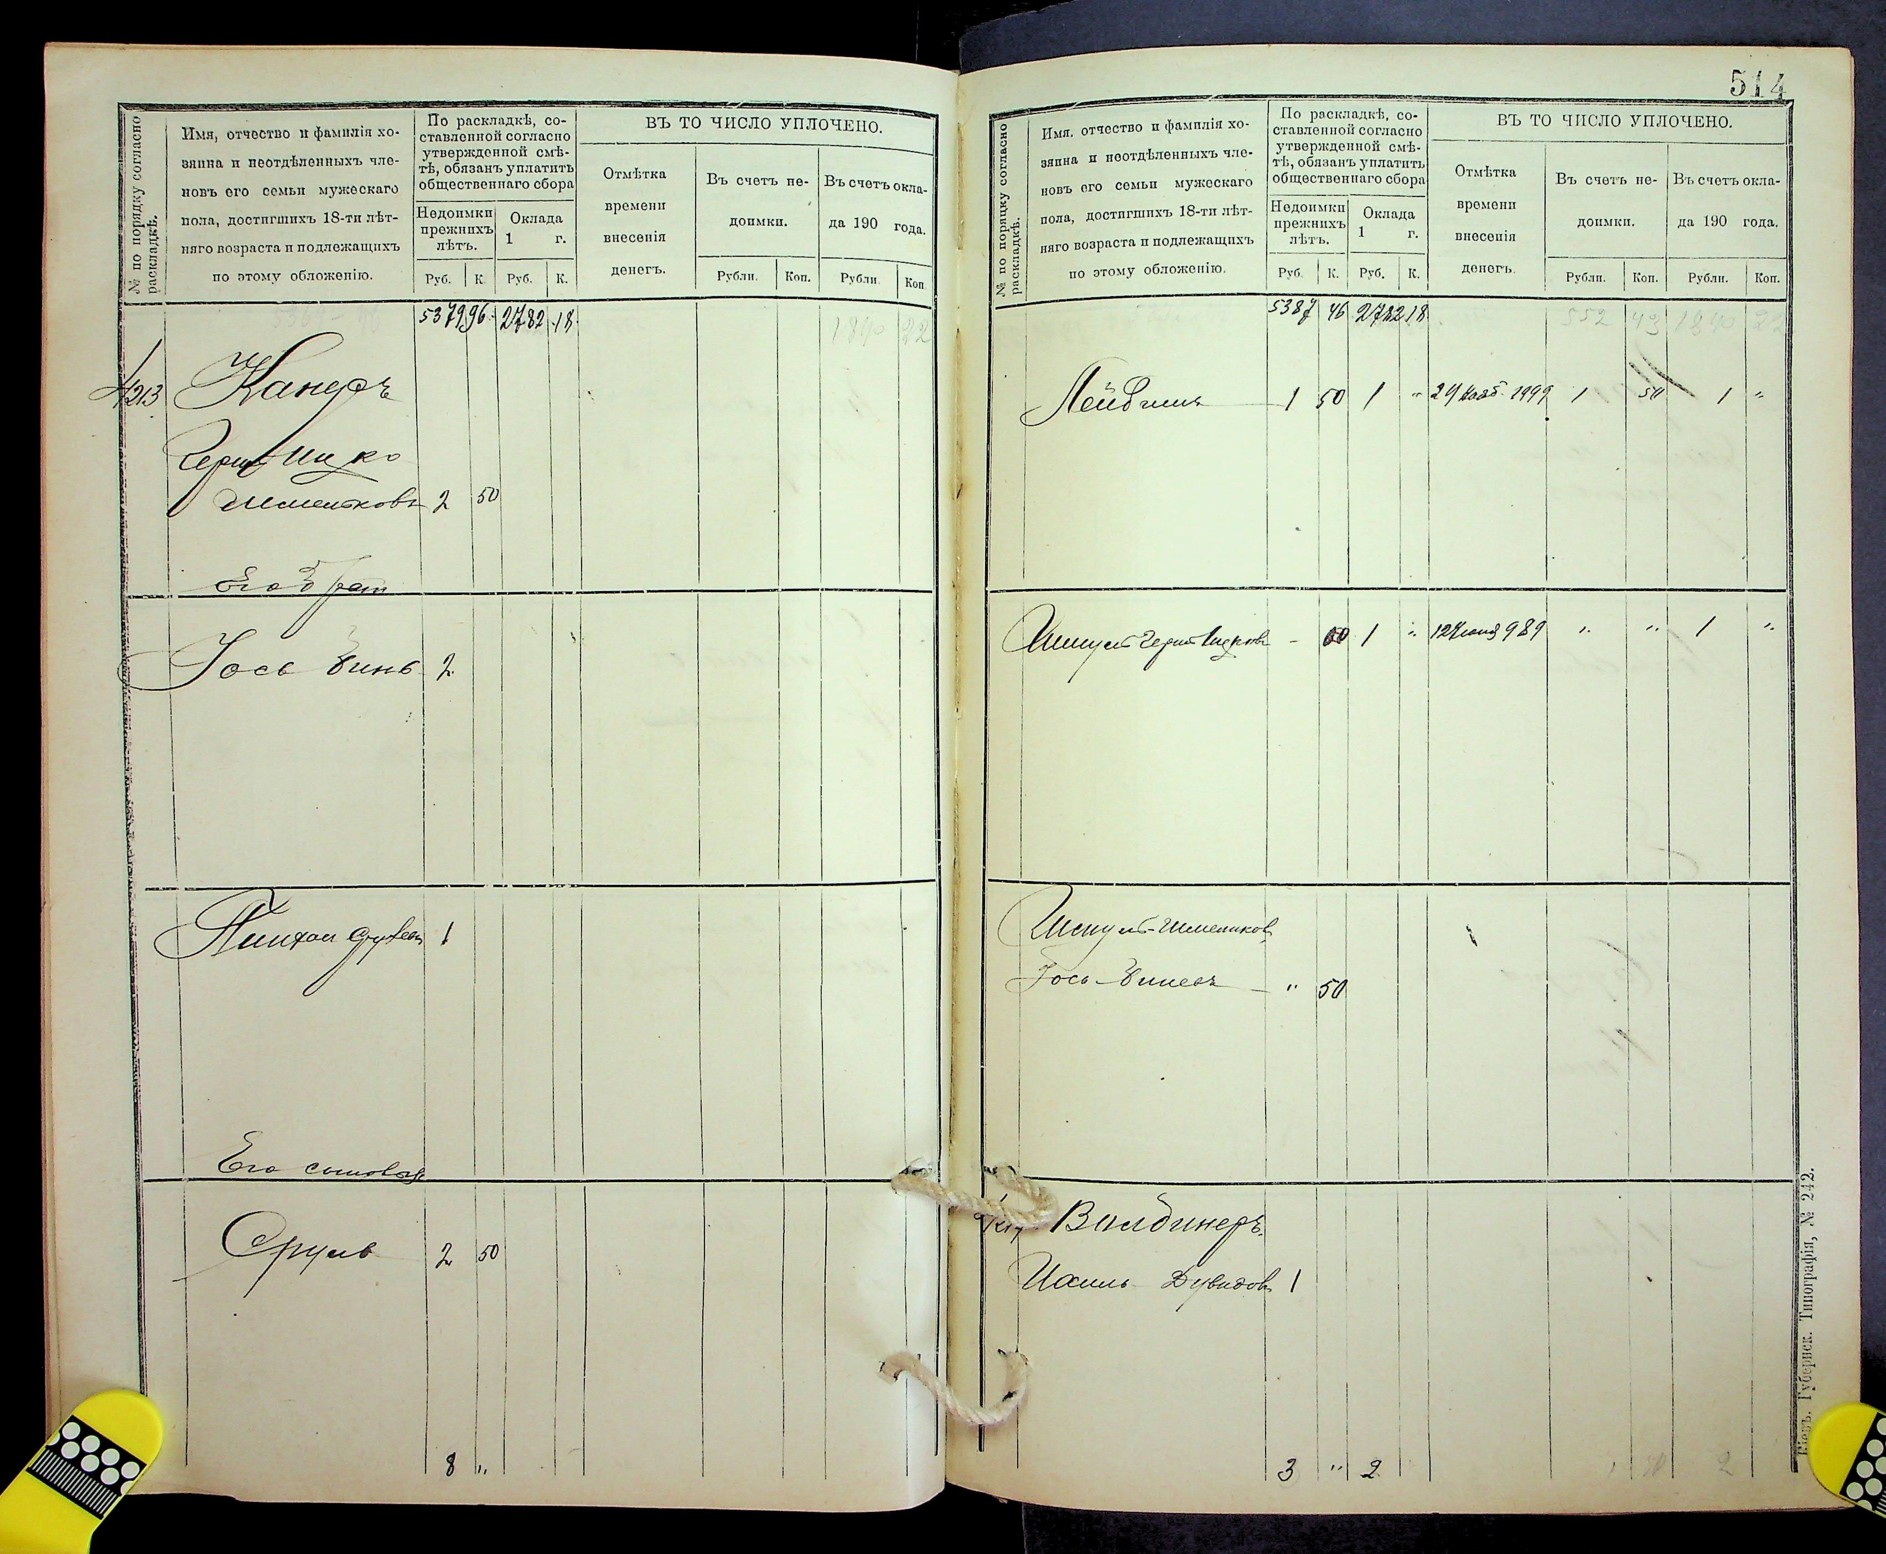 № по порядку согласно
раскладкѣ.
Имя, отчество и фамилія хо-
зяина и неотдѣленныхъ чле-
новъ его семьи мужескаго
пола, достигшихъ 18-ти лѣт-
няго возраста и подлежащихъ
по этому обложенію.
По раскладкѣ, со-
ставленной согласно
утвержденной смѣ-
тѣ, обязанъ уплатить
общественнаго сбора
Недоимки
прежнихъ
лѣтъ.
Оклада
1 г.
Руб. К. Руб. К.
ВЪ ТО ЧИСЛО УПЛОЧЕНО.
Отмѣтка
времени
внесенія
денегъ.
Въ счетъ не-
доимки.
Въ счетъ окла-
да 190 года.
Рубли. Коп. Рубли. Коп.
5379 96 2782 18 1840 22
4213 Канеръ
Герш Ицко
Шмельковъ 2 50
Его братъ
Іось Зинь 2
1
Его сыновья
Сруль 2 50
8 "
514
№ по порядку согласно
раскладкѣ.
Имя, отчество и фамилія хо-
зяина и неотдѣленныхъ чле-
новъ его семьи мужескаго
пола, достигшихъ 18-ти лѣт-
няго возраста и подлежащихъ
по этому обложенію.
По раскладкѣ, со-
ставленной согласно
утвержденной смѣ-
тѣ, обязанъ уплатить
общественнаго сбора
Недоимки
прежнихъ
лѣтъ.
Оклада
1 г.
Руб. К. Руб. К.
ВЪ ТО ЧИСЛО УПЛОЧЕНО.
Отмѣтка
времени
внесенія
денегъ.
Въ счетъ не-
доимки.
Въ счетъ окла-
да 190 года.
Рубли. Коп. Рубли. Коп.
5387 46 2782 18 552 43 1840 22
1 50 1 " 1 50 1 "
Шмуль Герш Ицковъ - 1 " 989 " " 1 "
Шмуль-Шмельковъ
" 50
Валдинеръ
Дувидовъ 1
3 " 2
Кіевъ. Губернск. Типографія, № 242.